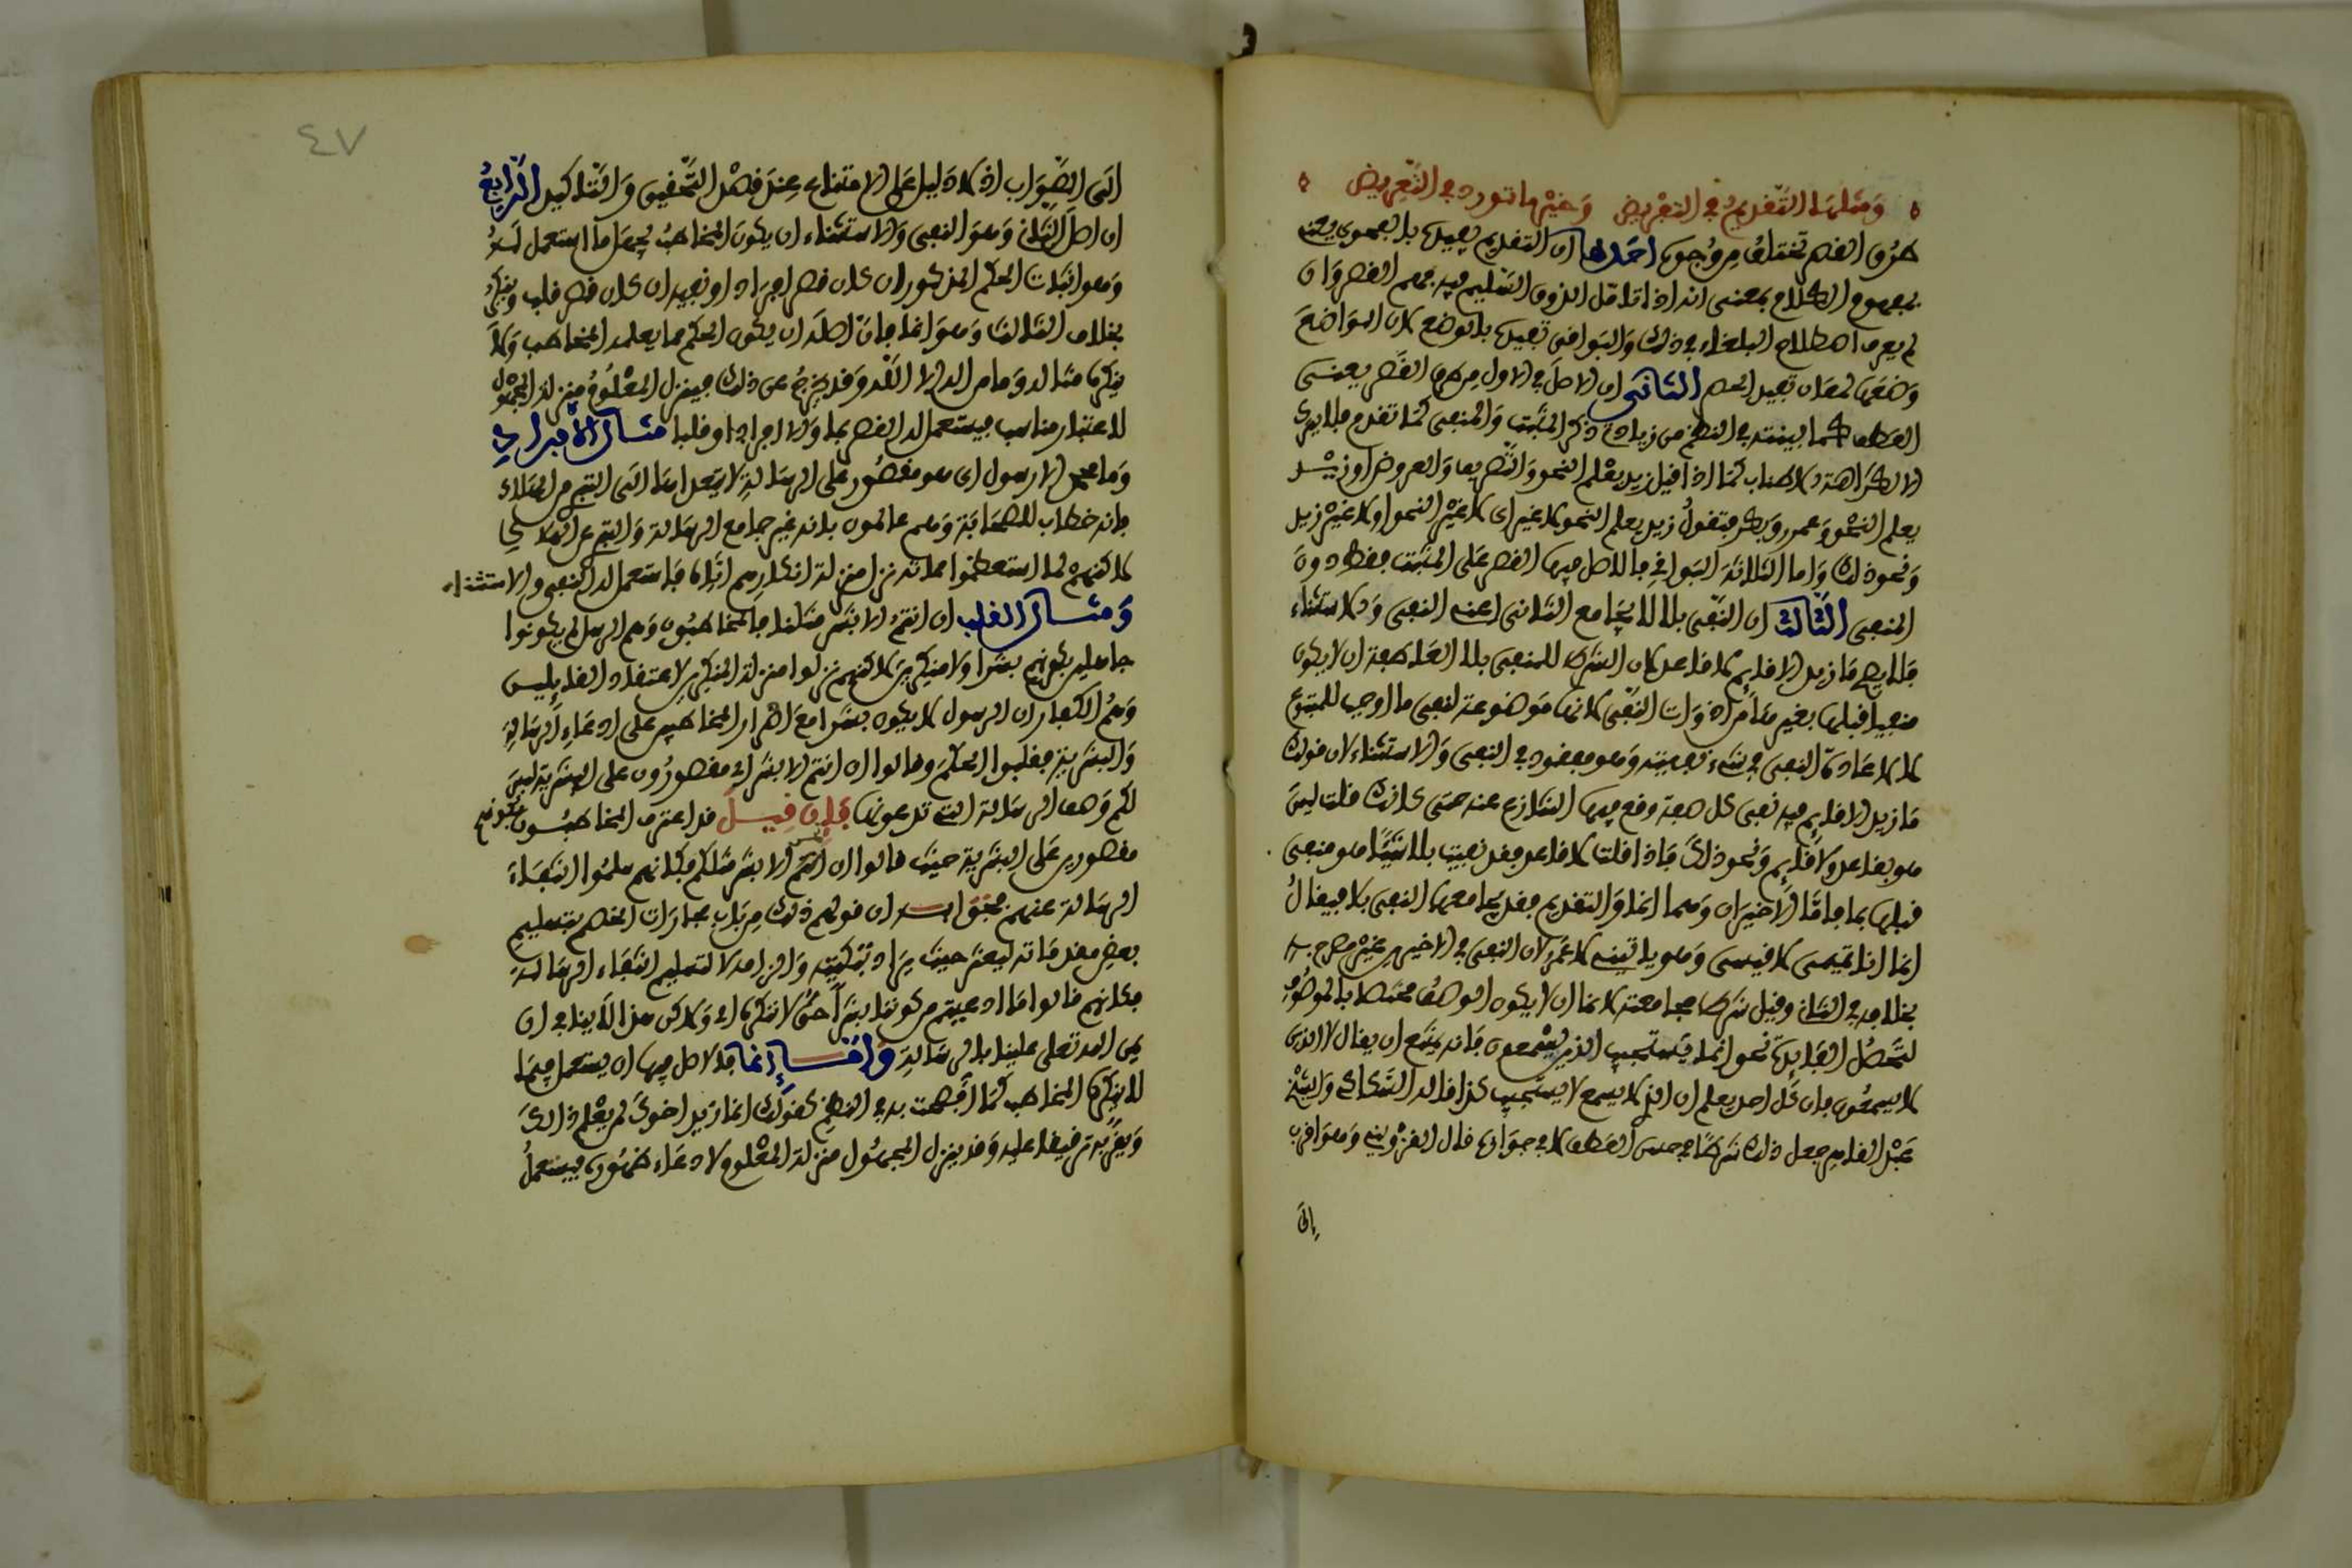 ومثلها التقديم في التعريض وخيرها تورد في التعريض
طرق القصر تختلف من وجوه احدها ان التقديم يفيده بالفحوى يعني
بمفهوم الكلام بمعنى انه اذا تأمل الذوق السليم فيه فهم القصر وان
لم يعرف اصطلاح البلغاء في ذلك والبواقي تفيده بالوضع لان الواضع
وضعها لمعان تفيد الحصر الثاني ان الاصل في الاول من طرق القصر يعني
العطف كما بينته في النظم من زيادتي ذكر المثبت والمنفي كما تقدم فلا يترك
الا لكراهة الاطناب كما اذا قيل زيد يعلم النحو والتصريف والعروض او زيد
يعلم النحو وعمرو وبكر فتقول زيد يعلم النحو لا غير اى لا غير النحو او لا غير زيد
ونحو ذلك واما الثلاثة البواقي فالاصل فيها القصر على المثبت فقط دون
المنفي الثالث ان النفي بلا لا يجامع الثاني اعني النفي والاستثناء
فلا يصح ما زيد الا قائم لا قاعد لان الشرط للمنفي بلا العاطفة ان لا يكون
منفيا قبلها بغيرها من ادوات النفي لانها موضوعة لنفي ما اوجب للمتبوع
لا لاعادة النفي في شيء نفيته وهو مفقود في النفي والاستثناء لان قولك
ما زيد الا قائم فيه نفي كل صفة وقع فيها التنازع عنه حتى كانك قلت ليس
هو بقاعد ولا نائم ونحو ذلك فاذا قلت لا قاعد فقد نفيت بلا شيئا هو منفي
قبلها بما فاما الاخيران وهما انما والتقديم فقد يجامعهما النفي بلا فيقال
انما انا تميمي لا قيسي وهو ياتيني لا عمرو لان النفي في الاخيرين غير مصرح به
بخلافه في الثاني وقيل شرط مجامعته لانما ان لا يكون الوصف مختصا بالموصوف
لتحصل الفايدة نحو انما يستجيب الذين يسمعون فانه يمتنع ان يقال لا الذين
لا يسمعون فان كل احد يعلم ان الذي لا يسمع لا يستجيب كذا قاله السكاكي والشيخ
عبد القاهر جعل ذلك شرطا في حسن العطف لا في جوازه قال القزويني وهو اقرب
الى
الى الصواب اذ لا دليل على الامتناع عند قصد التحقيق والتاكيد الرابع
ان اصل الثاني وهو النفي والاستثناء ان يكون المخاطب يجهل ما استعمل له
وهو اثبات الحكم المذكور ان كان قصر افراد او نفيه ان كان قصر قلب وينكره
بخلاف الثالث وهو انما فان اصله ان يكون الحكم مما يعلمه المخاطب ولا
ينكره مثاله وما من اله الا الله وقد يخرج عن ذلك فينزل المعلوم منزلة المجهول
لاعتبار مناسب فيستعمل له القصر بما والا افرادا وقلبا مثال الافراد
وما محمد الا رسول اى هو مقصور على الرسالة لا يتعداها الى التبري من الهلاك
فانه خطاب للصحابة وهم عالمون بانه غير جامع الرسالة والتبري عن الهلاك
لاكنهم لما استعظموا هلاكه نزل منزلة انكارهم اياه فاستعمل له النفي والاستثناء
ومثال القلب ان انتم الا بشر مثلنا فالمخاطبون وهم الرسل لم يكونوا
جاهلين بكونهم بشرا ولا منكرين لاكنهم نزلوا منزلة المنكرين لاعتقاد القايلين
وهم الكفار ان الرسول لا يكون بشرا مع اصرار المخاطبين على ادعاء الرسالة
والبشرية فقلبوا الحكم وقالوا ان انتم الا بشر اى مقصورون على البشرية ليس
لكم وصف الرسالة التي تدعونها فان قيل قد اعترف المخاطبون بكونهم
مقصورين على البشرية حيث قالوا ان نحن الا بشر مثلكم فكانهم سلموا انتفاء
الرسالة عنهم فجوابه ان قولهم ذلك من باب مجارات الخصم بتسليم
بعض مقدماته ليعثر حيث يراد تبكيته والزامه لا لتسليم انتفاء الرسالة
فكانهم قالوا ما ادعيتم من كوننا بشرا حق لا ننكره اى ولاكن هذا لا ينافي ان
يمن الله تعلى علينا بالرسالة واما انما فالاصل فيها ان يستعمل فيما
لا ينكره المخاطب كما افصحت به في النظم كقولك انما زيد اخوك لمن يعلم ذالك
ويقر به ترقيقا عليه وقد ينزل المجهول منزلة المعلوم لادعاء ظهوره فيستعمل
٤٧